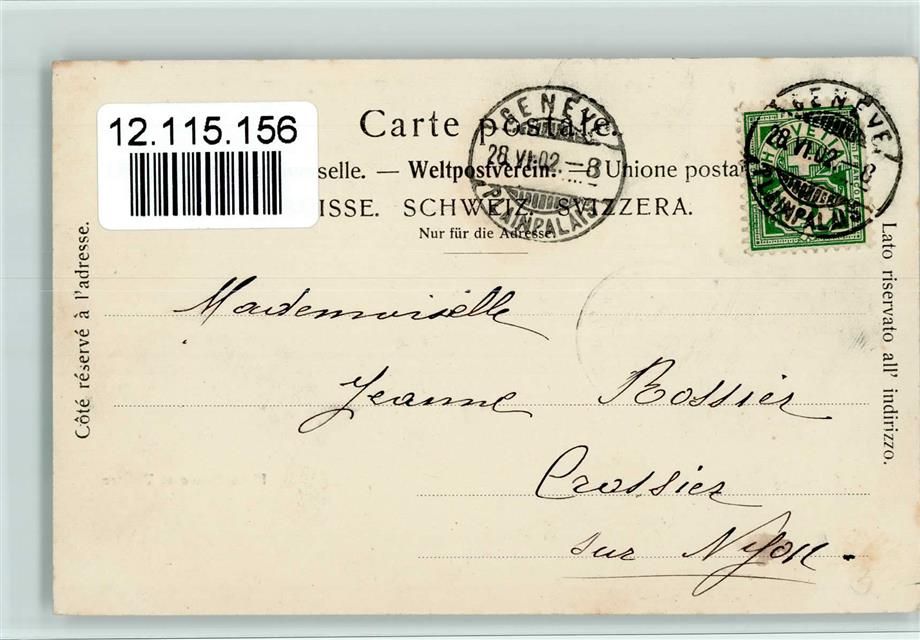 12.115.156
Carte postale.
selle. — Weltpostverein. — Unione posta
ISSE. SCHWEIZ. SVIZZERA.
Nur für die Adresse.
GENÈVE
28.VI.02.–8
PLAINPALAIS
GENÈVE
28.VI.02.–8
PLAINPALAIS
HELVETIA
FRANCO
Côté réservé à l'adresse.
Lato riservato all' indirizzo.
Mademoiselle
Jeanne Rossier
Crassier
sur Nyon.